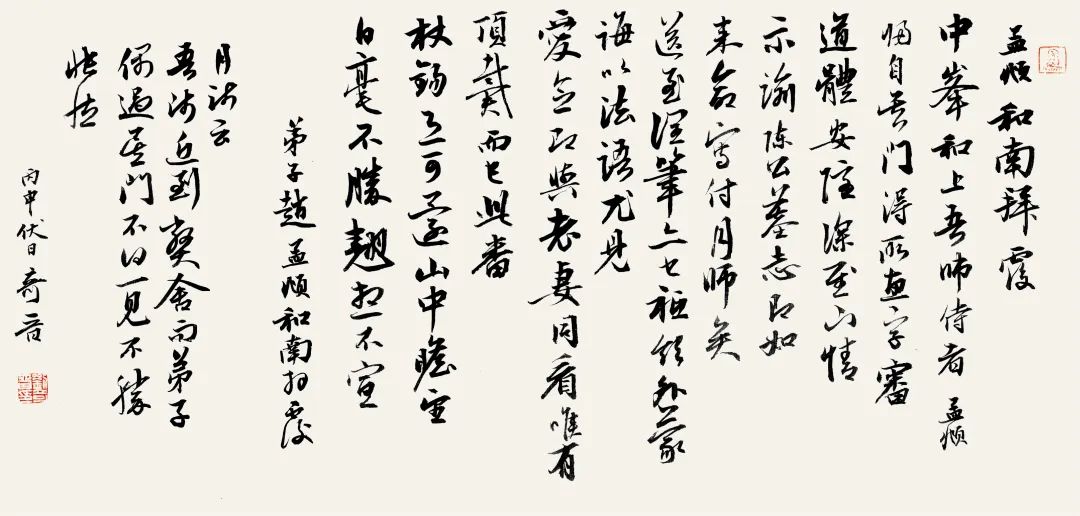 孟頫和南拜覆
中峯和上吾師侍者 孟頫
歸自吳門得所惠字審
道體安隱深慰下情
示諭陳公墓志即如
來命寫付月師矣
送至潤筆亦已祗領外蒙
誨以法語尤見
愛念即與老妻同看唯有
頂戴而已此番
杖錫且可還山中瞻企
白毫不勝翹想不宣
弟子趙孟頫和南拜覆
月師云
吾師近到弊舍而弟子
偶過吳門不得一見不勝
悵怏
丙申伏日奇音